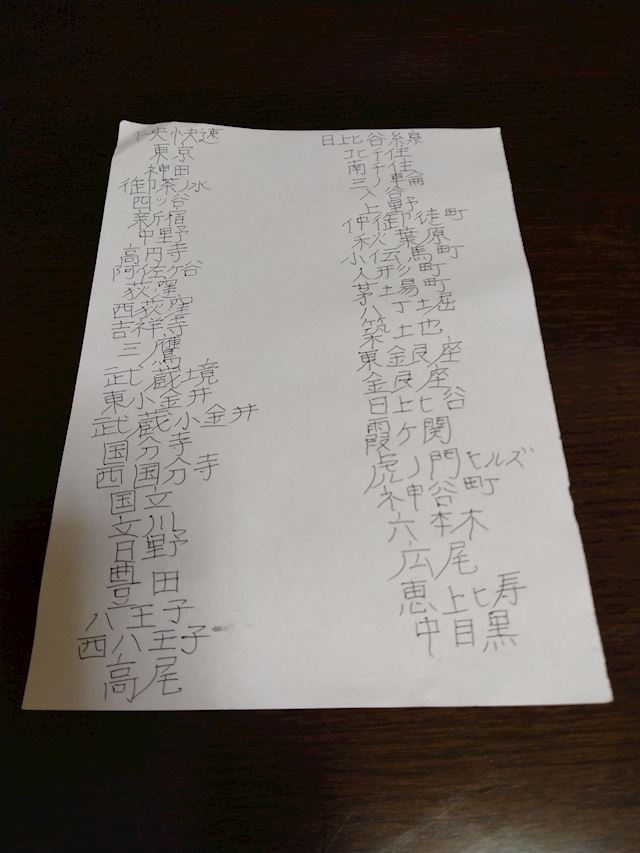 中央快速
東京
神田
御茶ノ水
四ッ谷
新宿
中野
高円寺
阿佐ヶ谷
荻窪
西荻窪
吉祥寺
三鷹
武蔵境
東小金井
武蔵小金井
国分寺
西国分寺
国立
立川
日野
豊田
八王子
西八王子
高尾
日比谷線
北千住
南千住
三ノ輪
入谷
上野
仲御徒町
秋葉原
小伝馬町
人形町
茅場町
八丁堀
築地
東銀座
銀座
日比谷
霞ケ関
虎ノ門ヒルズ
神谷町
六本木
広尾
恵比寿
中目黒